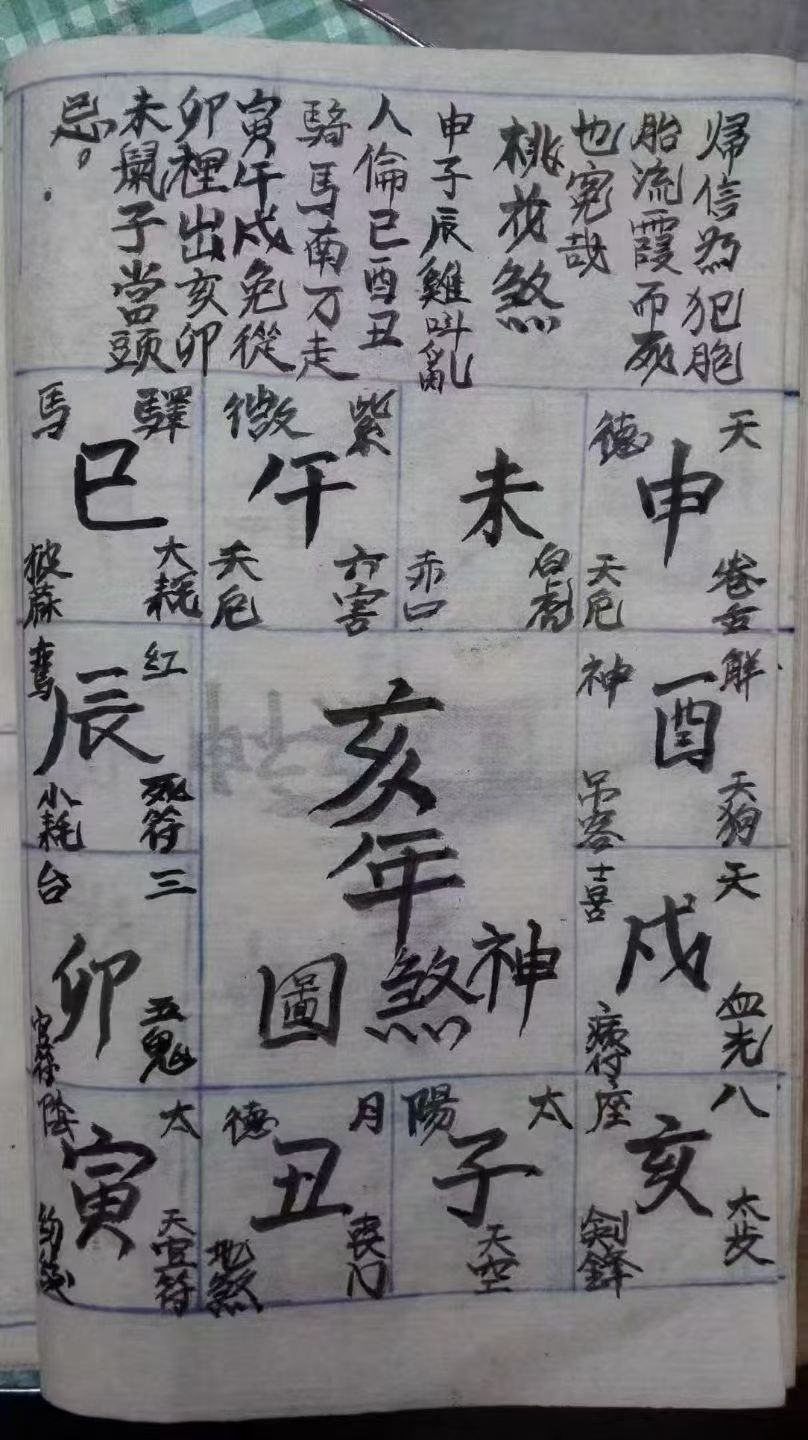 帰信為犯胞
胎流霞而死
也寃哉
桃花煞
申子辰雞叫亂
人倫巳酉丑
騎馬南方走
寅午戌兔從
卯裡出亥卯
未鼠子當頭
忌。
天德
申
卷舌
天厄
未
白虎
赤口
紫微
午
六害
天厄
驛馬
巳
大耗
披蔴
解神
酉
天狗
吊客
紅鸞
辰
死符
小耗
天喜
戌
血光
病符
三台
卯
五鬼
官符
八座
亥
太歲
剑鋒
太陽
子
天空
月德
丑
喪门
地煞
太陰
寅
天官符
亥年
神煞圖